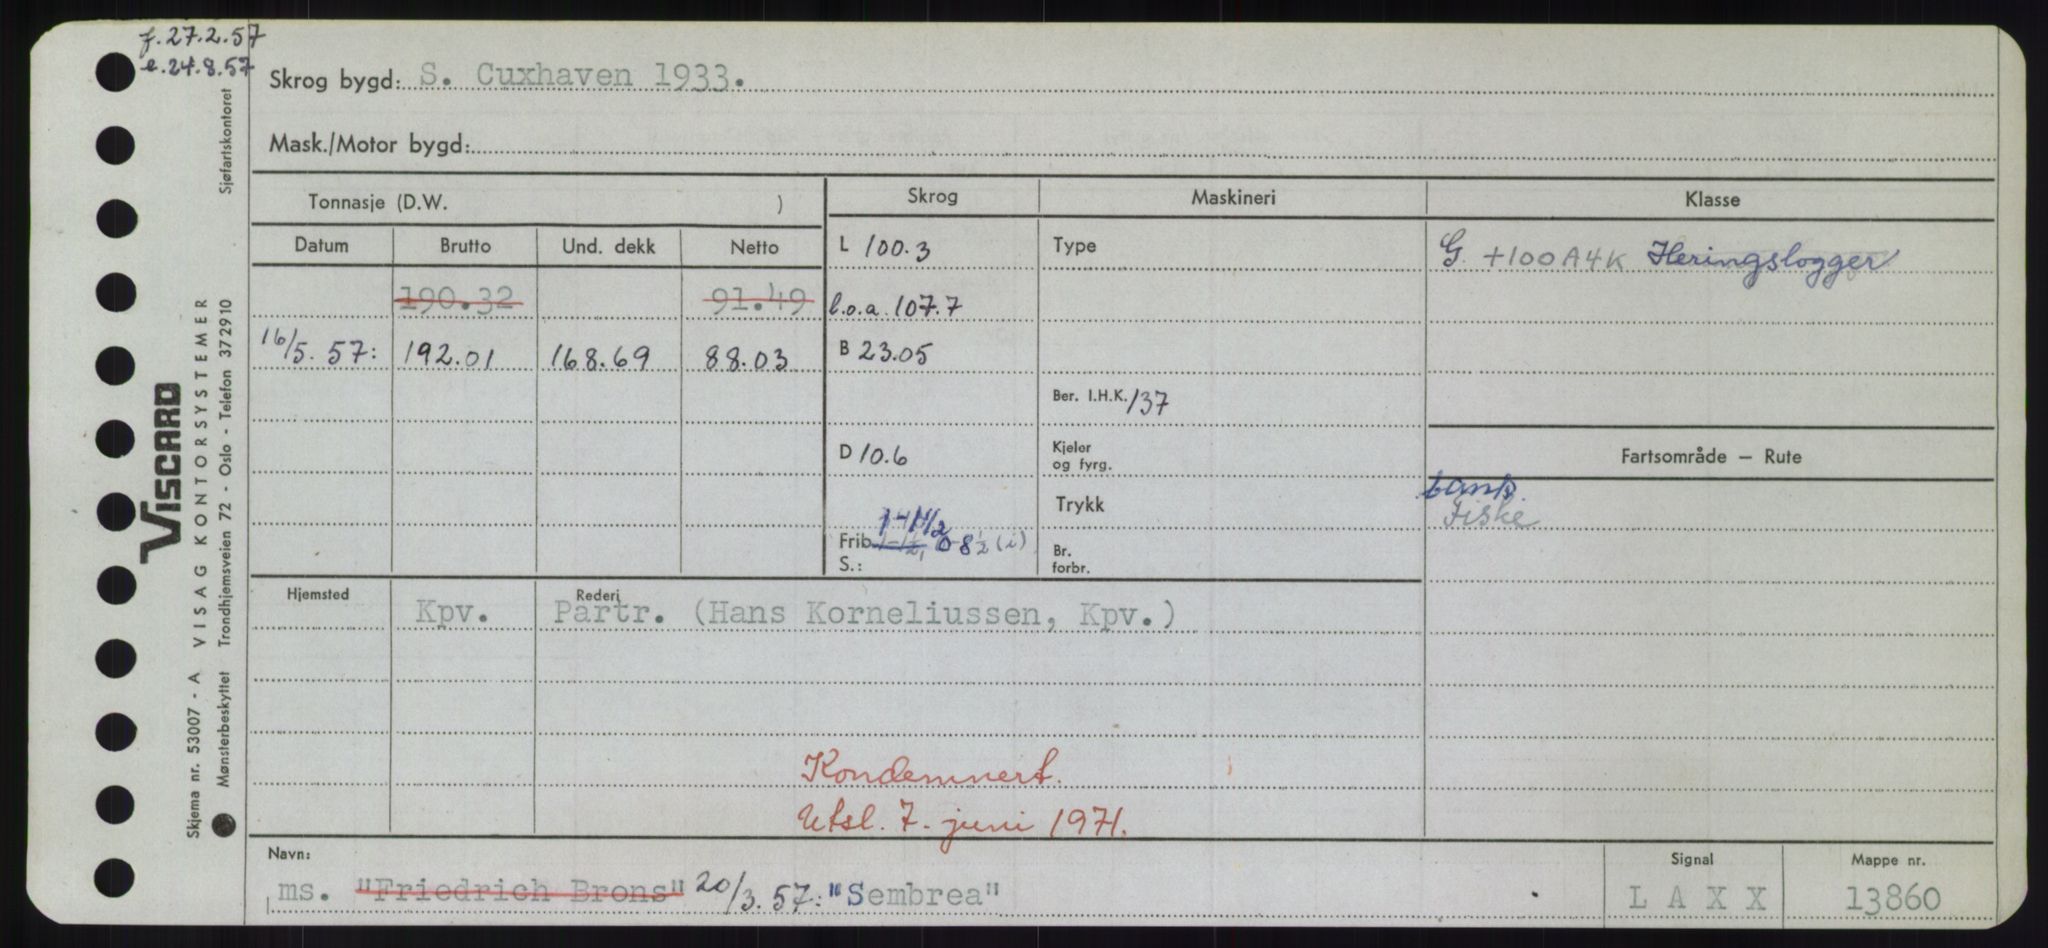 f. 27.2.57
e. 24.8.57
Skrog bygd: S. Cuxhaven 1933.
Mask./Motor bygd:
Tonnasje (D.W. )
Skrog
Maskineri
Klasse
Datum
Brutto
Und. dekk
Netto
L 100.3
Type
G. +100A4K Heringslogger
190.32
91.49
l.o.a. 107.7
16/5. 57:
192.01
168.69
88.03
B 23.05
Ber. I.H.K. 137
D 10.6
Kjeler
og fyrg.
Fartsområde – Rute
Trykk
bank.
fiske
Frib. 0-8½ (i)
S.:
Br.
forbr.
Hjemsted
Kpv.
Rederi
Partr. (Hans Korneliussen, Kpv.)
Kondemnert.
Utsl. 7. juni 1971.
Navn:
ms. "Friedrich Brons" 20/3. 57: "Sembrea"
Signal
L A X X
Mappe nr.
13860
VISCARD
Skjema nr. 53007 - A VISAG KONTORSYSTEMER
Mønsterbeskyttet Trondhjemsveien 72 - Oslo - Telefon 372910 Sjøfartskontoret